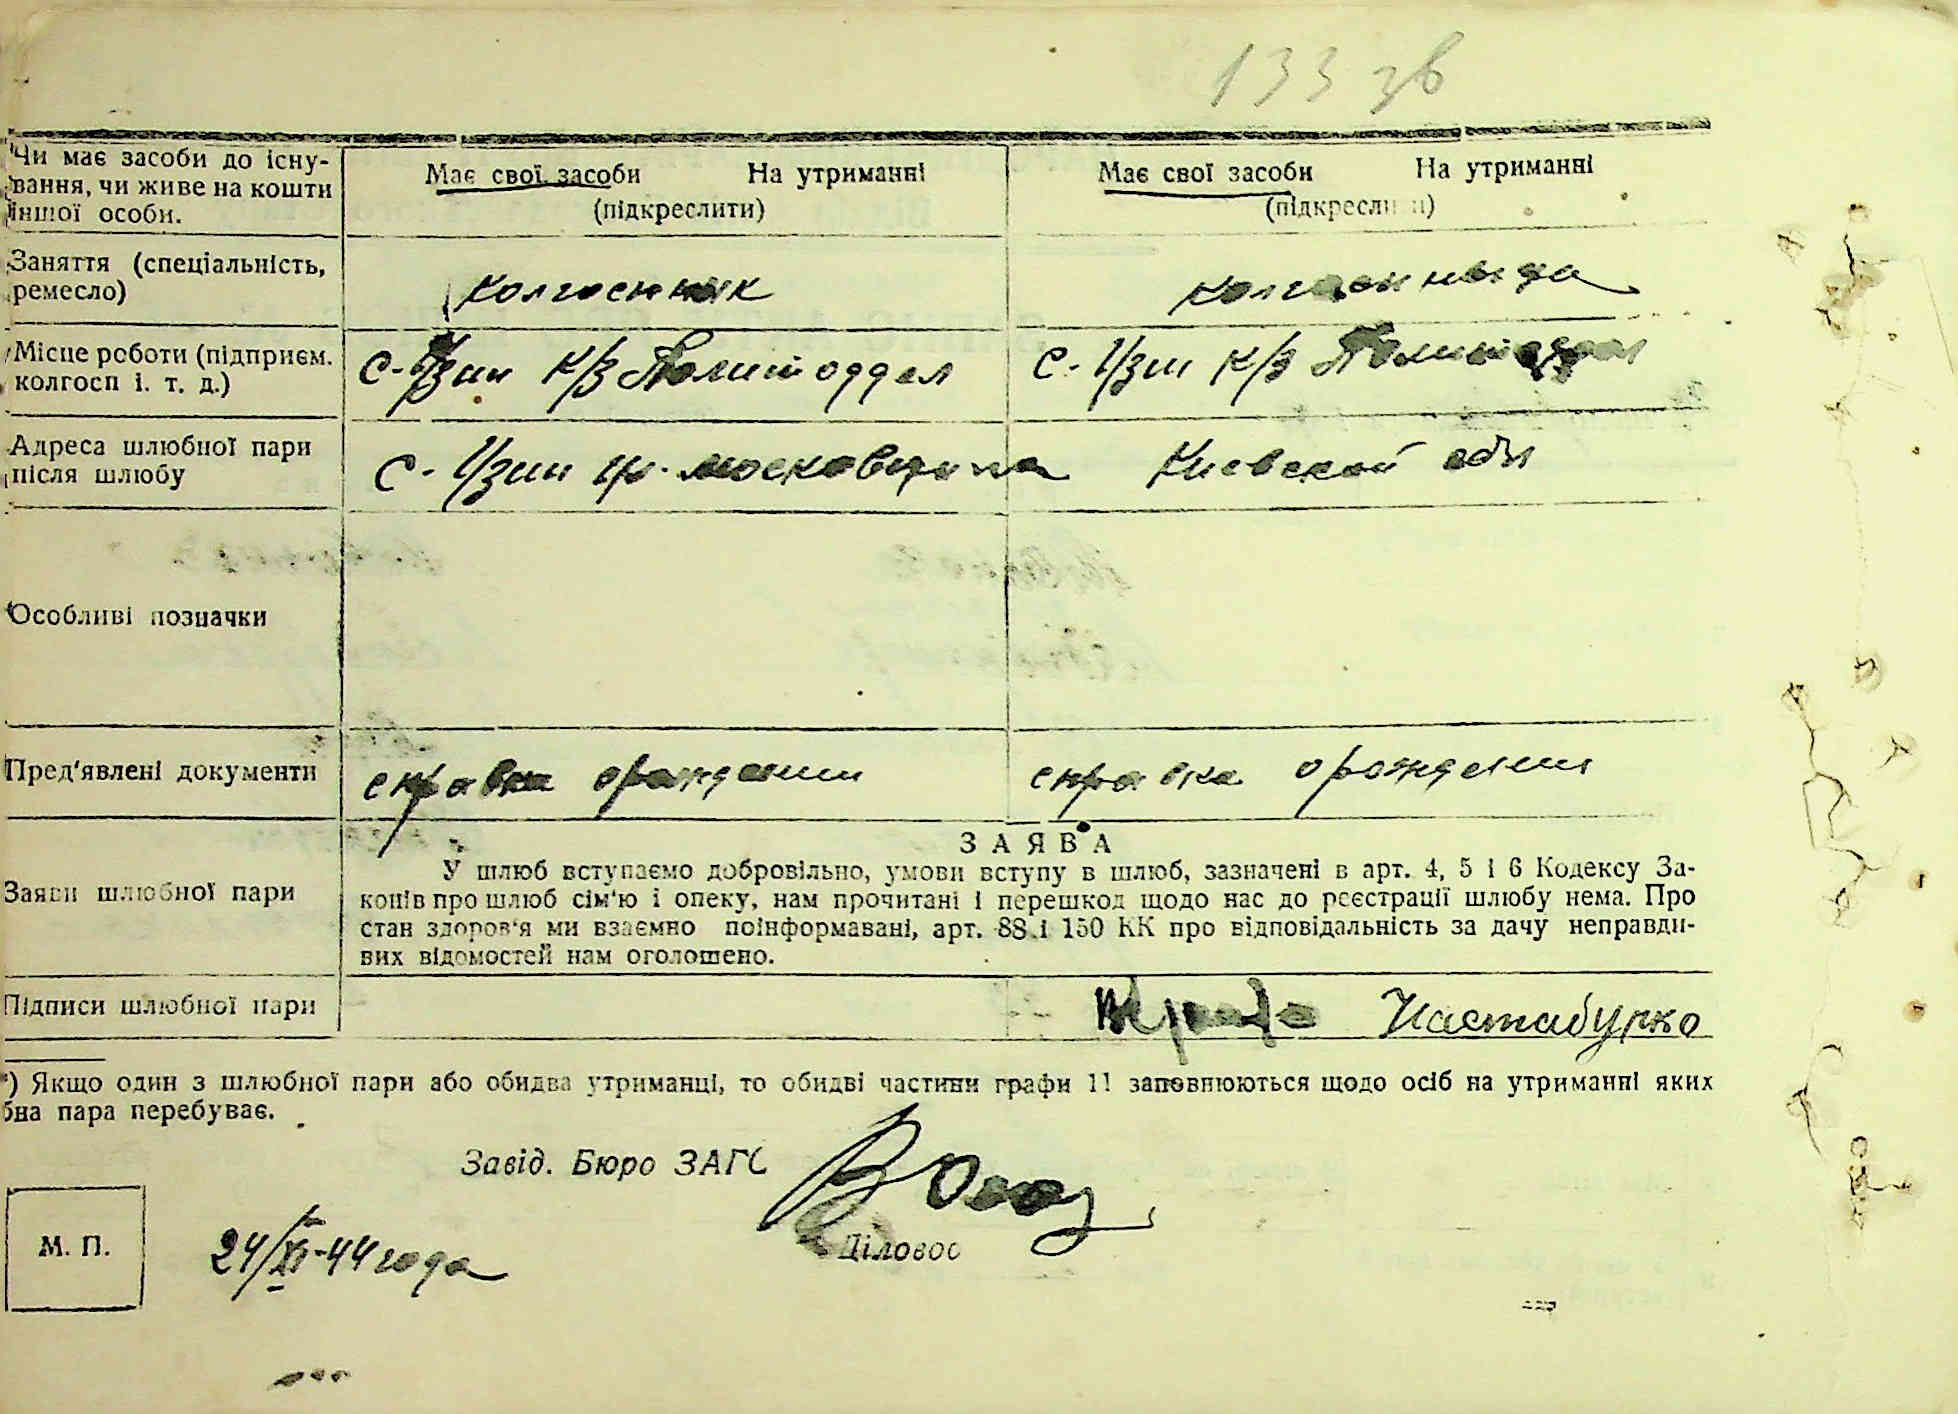 133 зв
Чи має засоби до існу-
вання, чи живе на кошти
іншої особи.
Має свої засоби На утриманні
(підкреслити)
Має свої засоби На утриманні
(підкреслити)
Заняття (спеціальність,
ремесло)
колгоспник
колгоспныца
Місце роботи (підприєм.
колгосп і. т. д.)
С. Узин К/з Политоддел
С. Узин К/з Политоддел
Адреса шлюбної пари
після шлюбу
С. Узин московщина Киевской обл
Особливі позначки
Пред'явлені документи
справка о рождении
справка о рождении
Заяви шлюбної пари
ЗАЯВА
У шлюб вступаємо добровільно, умови вступу в шлюб, зазначені в арт. 4, 5 і 6 Кодексу За-
конів про шлюб сім'ю і опеку, нам прочитані і перешкод щодо нас до реєстрації шлюбу нема. Про
стан здоров'я ми взаємно поінформавані, арт. 88 і 150 КК про відповідальність за дачу неправди-
вих відомостей нам оголошено.
Підписи шлюбної пари
*) Якщо один з шлюбної пари або обидва утриманці, то обидві частини графи 11 заповнюються щодо осіб на утриманні яких
бна пара перебуває.
Завід. Бюро ЗАГС
Діловод
М. П.
24/XI-44 года